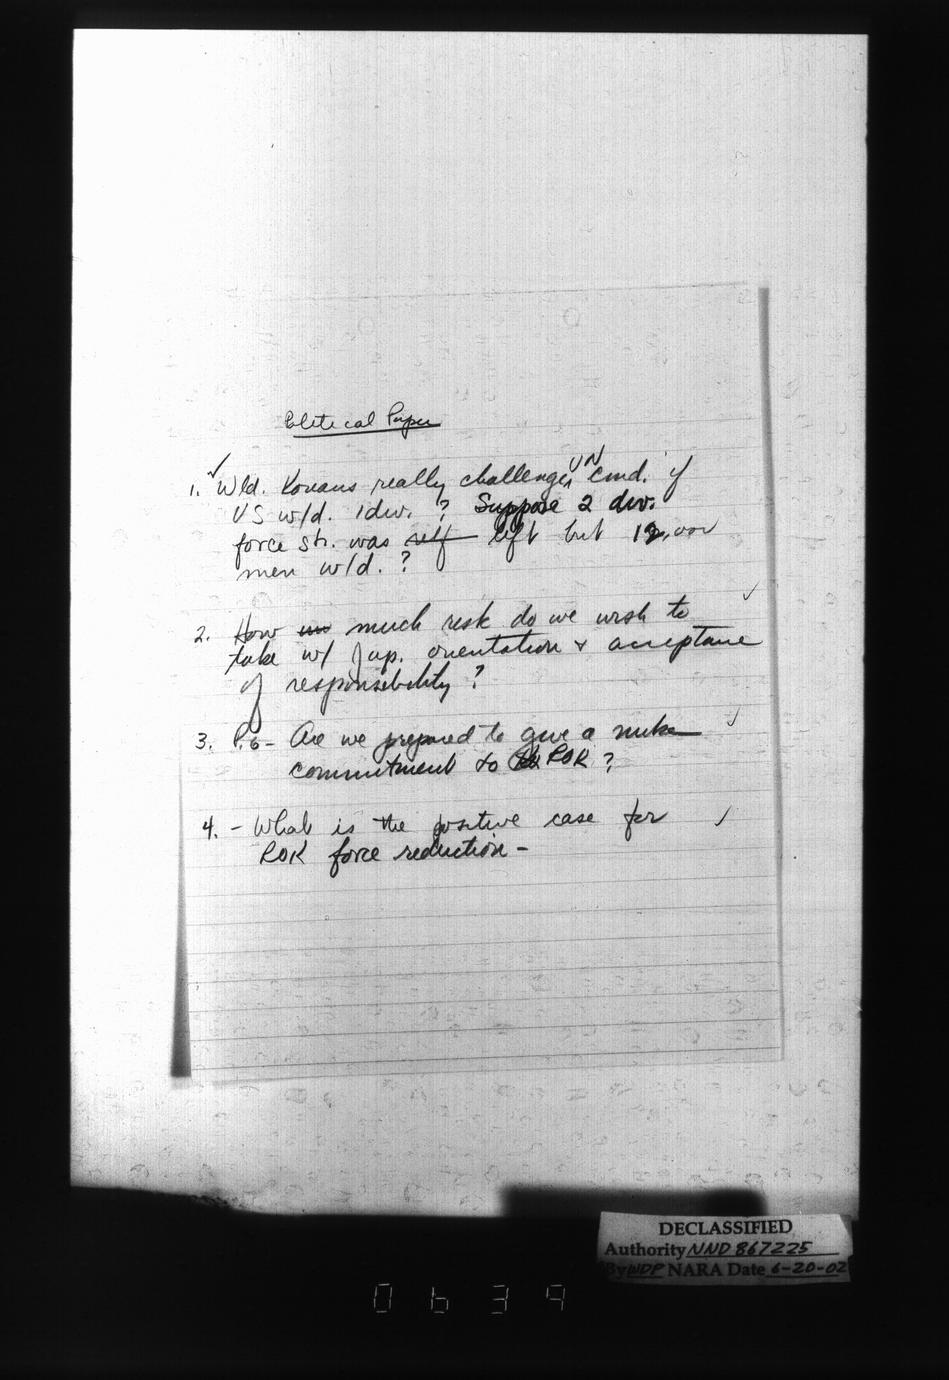 Political Paper
1. ✓ Wld. Koreans really challenge UN Cmd. if
US w/d. 1 div. ? Suppose 2 div.
force str. was left but 12,000
men w/d. ?
2. How much risk do we wish to ✓
take w/ Jap. orientation & acceptance
of responsibility ?
3. P.6 - Are we prepared to give a nuke ✓
commitment to ROK ?
4. - What is the positive case for ✓
ROK force reduction -
DECLASSIFIED
Authority NND 867225
By WDP NARA Date 6-20-02
0639